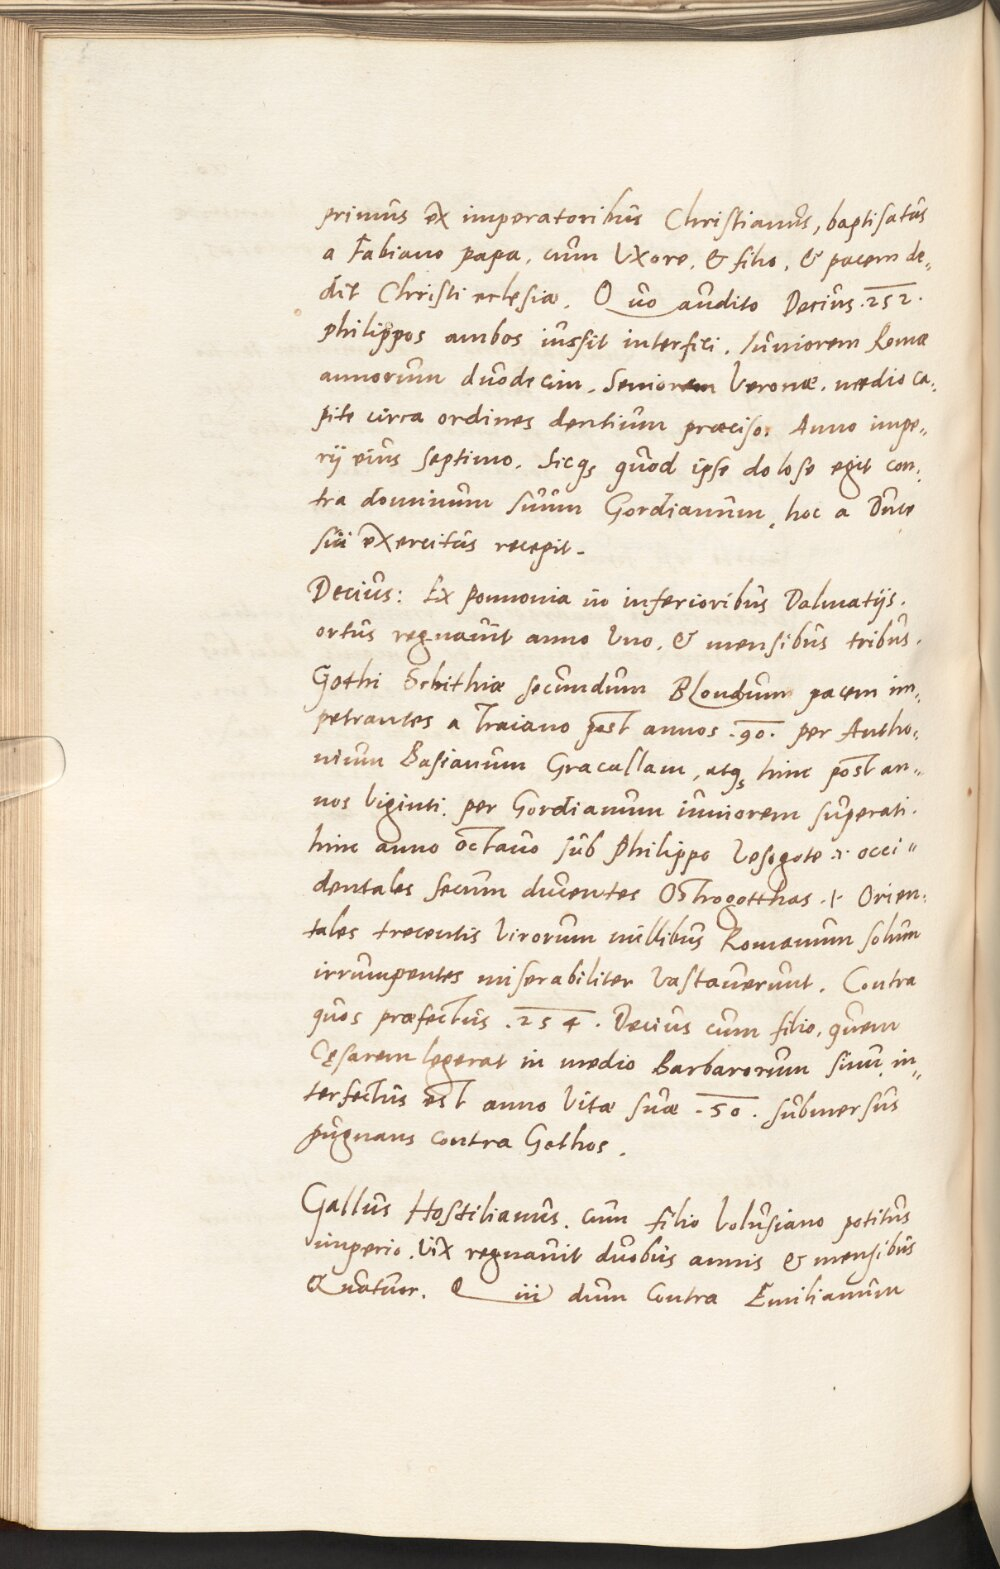 primus ex imperatoribus Christianus, baptisatus
a Fabiano papa, cum Uxore, & filio, & pacem de„
dit Christi eclesiæ. Quo audito Decius .252.
philippos ambos iussit interfici. Iuniorem Romæ
annorum duodecim. Seniorem Veronæ. medio ca„
pite circa ordines dentium præciso. Anno impe„
rij eius septimo. Sicq; quod ipse dolose egit con„
tra dominum suum Gordianum, hoc a Duce
sui exercitus recepit.
Decius: Ex ponnonia in inferioribus Dalmatijs.
ortus regnauit anno Uno. & mensibus tribus.
Gothi Schithiæ secundum Blondum pacem im„
petrantes a Traiano post annos .90. per Antho„
nium Basianum Gracallam, atq; hinc post an„
nos Viginti. per Gordianum iuniorem superati.
hinc anno octauo sub Philippo Vesogote .i. occi„
dentales secum ducentes Ostrogotthas .i. Orien„
tales trecentis Virorum millibus Romanum solum
irrumpentes miserabiliter Vastauerunt. Contra
quos præfectus .254. Decius cum filio, quem
Cęsarem legerat in medio Barbarorum sinu in„
terfectus est anno Vitæ suæ .50. submersus
pugnans contra Gothos.
Gallus Hostilianus. cum filio Volusiano potitus
imperio. Vix regnauit duobus annis & mensibus
Quatuor. Qui dum Contra Emilianum